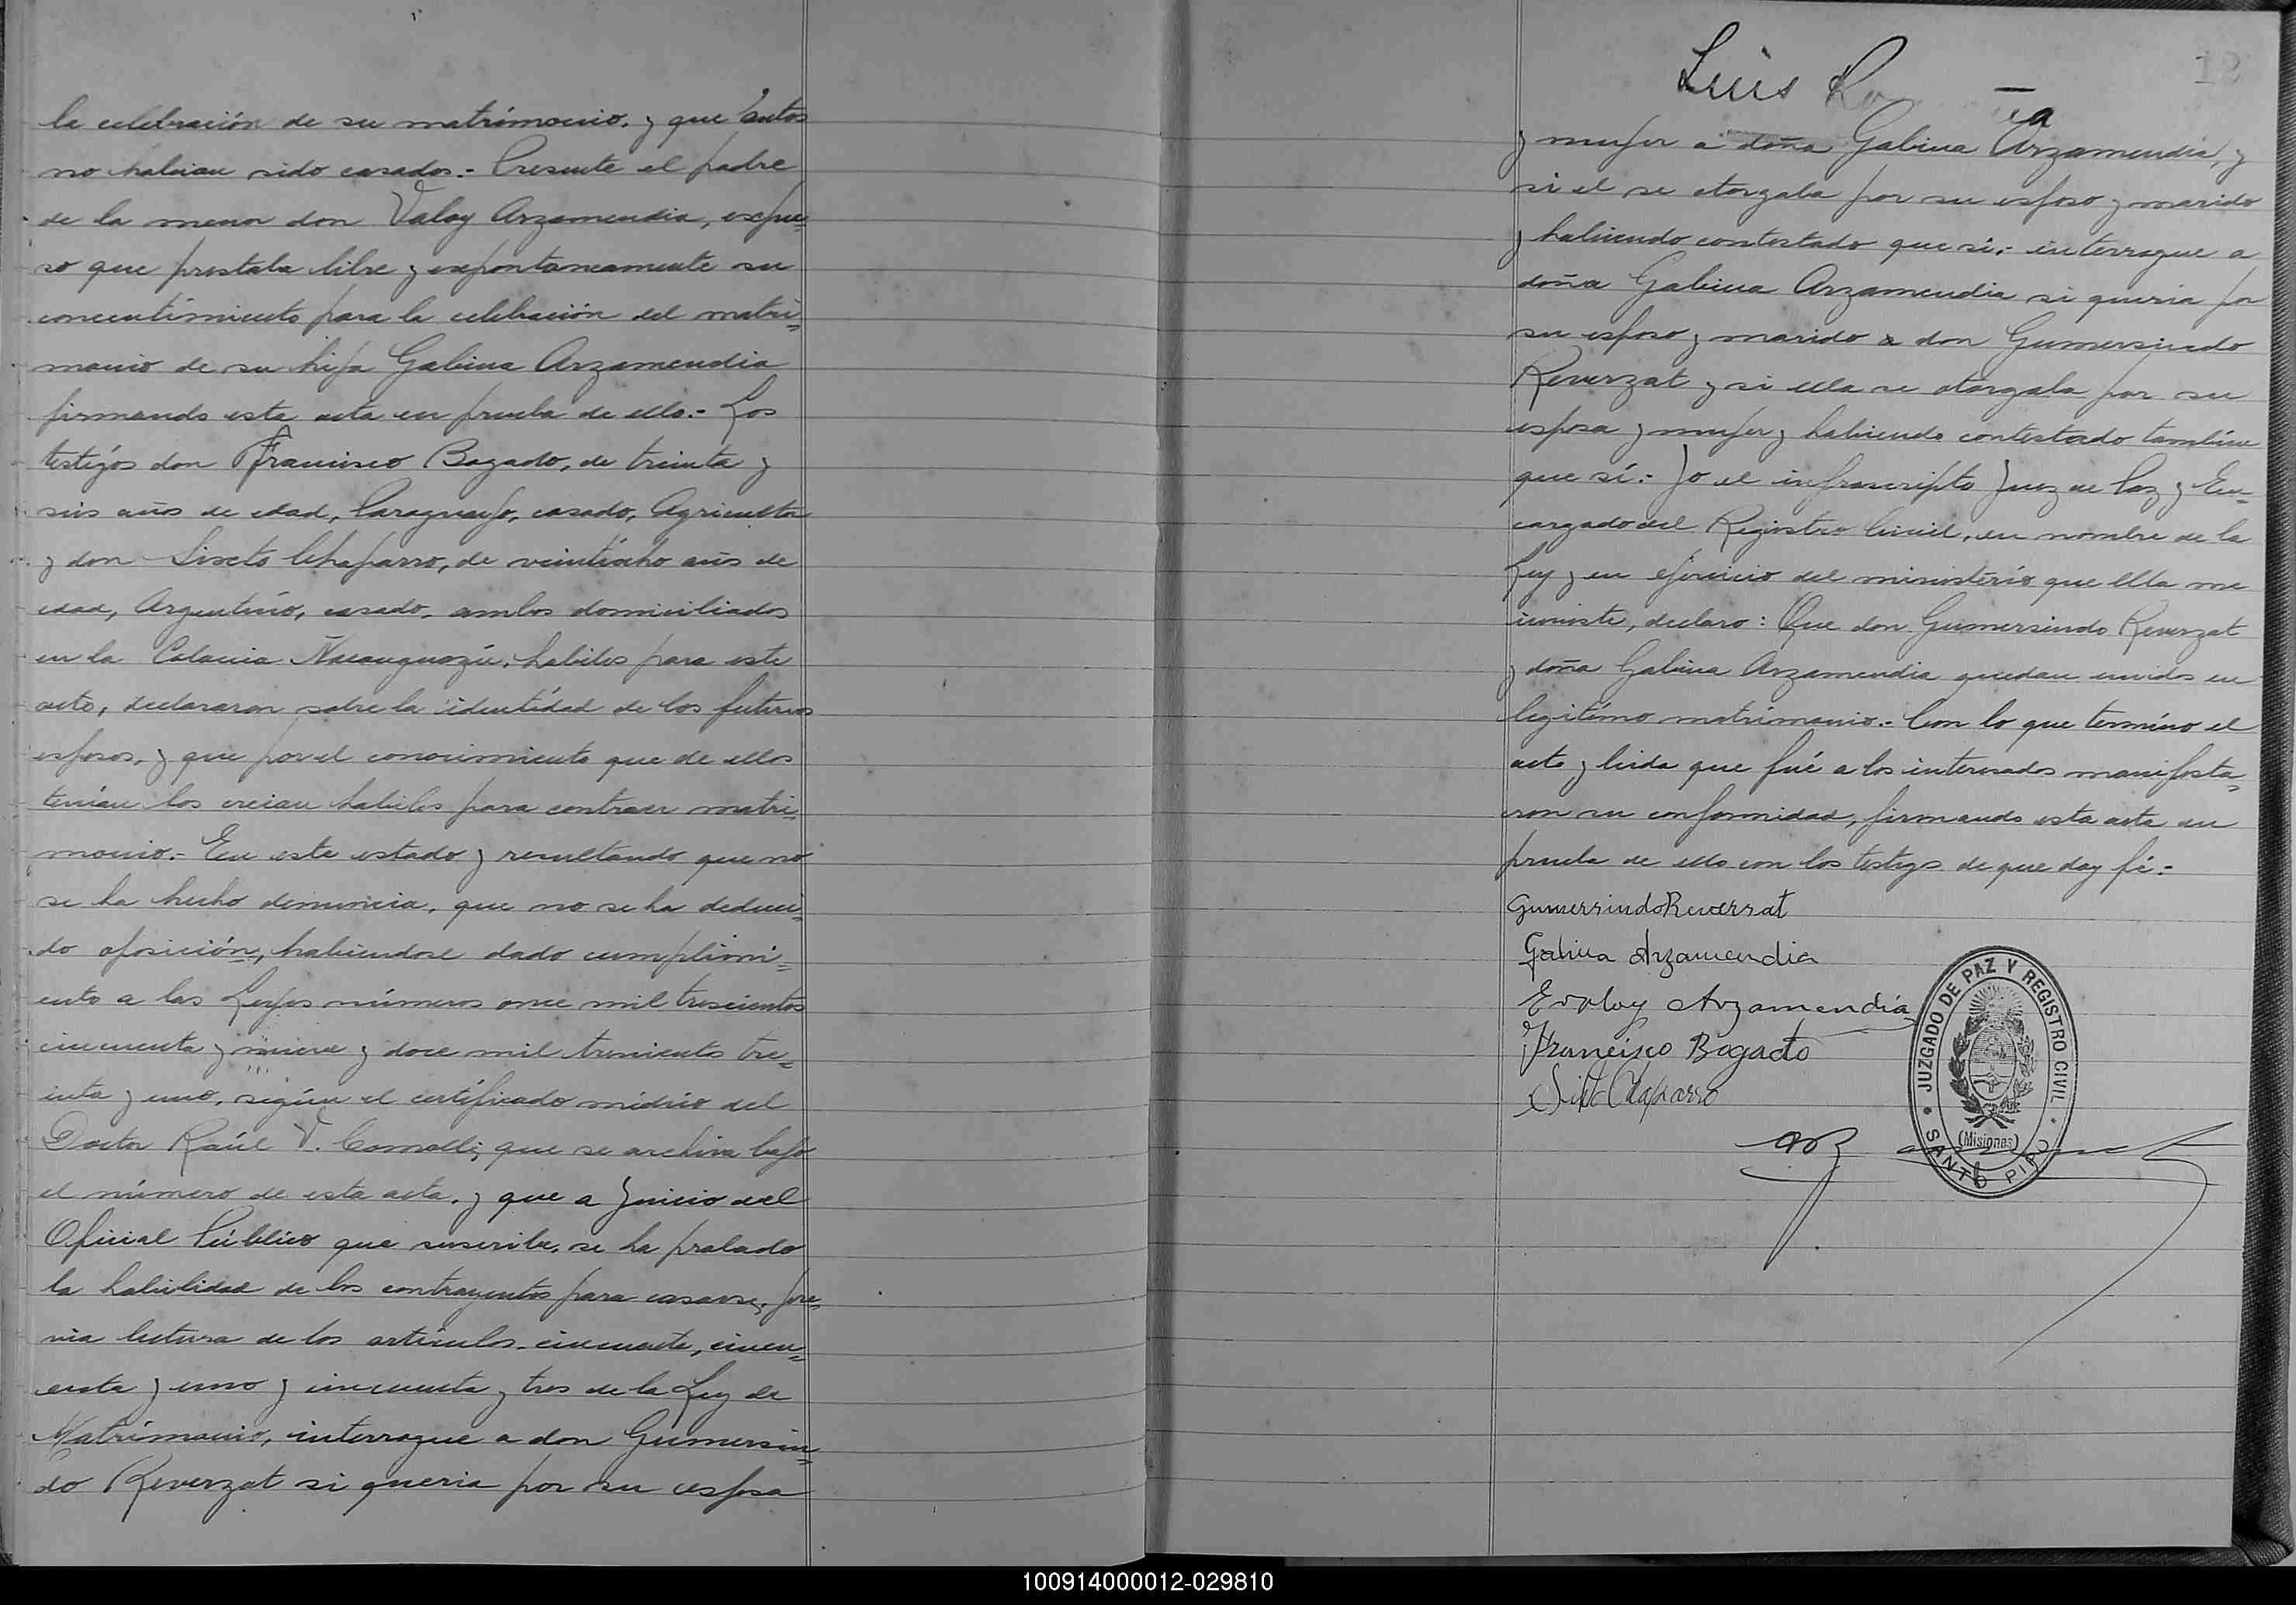 la celebración de su matrimonio, y que antes
no habian sido casados.- Presente el padre
de la menor don Valoy Arzamendia, expu=
so que prestaba libre y expontaneamente su
concentimiento para la celebración del matri=
monio de su hija Gabina Arzamendia
firmando esta acta en prueba de ello.- Los
testigos don Francisco Bogado, de treinta y
seis años de edad, Paraguayo, casado, Agricultor
y don Sixto Chaparro, de veintiocho años de
edad, Argentino, casado, ambos domiciliados
en la Colonia Ñacanguazú, habiles para este
acto, declararon sobre la identidad de los futuros
esposos, y que por el conocimiento que de ellos
tenian los creian habiles para contraer matri=
monio.- En este estado y resultando que no
se ha hecho denuncia, que no se ha deduci=
do oposición, habiendose dado cumplimi=
ento a las Leyes números once mil trescientos
cincuenta y nueve y doce mil trescientos tre=
inta y uno, según el certificado médico del
Doctor Raúl V. Comolli, que se archiva bajo
el número de esta acta, y que a Juicio del
Oficial Público que suscribe, se ha probado
la habilidad de los contrayentes para casarse, pre=
via lectura de los articulos cincuenta, cincu=
enta y uno y cincuenta y tres de la Ley de
Matrimonio, interrogue a don Gumersin=
do Reverzat si queria por su esposa
Luis
12
y mujer a doña Gabina Arzamendia, y
si el se otorgaba por su esposo y marido
y habiendo contestado que si.- interrogue a
doña Gabina Arzamendia si queria por
su esposo y marido a don Gumersindo
Reverzat y si ella se otorgaba por su
esposa y mujer y habiendo contestado tambien
que sí.- Yo el infrascripto Juez de Paz y En=
cargado del Registro Civil, en nombre de la
Ley y en ejercicio del ministerio que ella me
inviste, declaro: Que don Gumersindo Reverzat
y doña Gabina Arzamendia quedan unidos en
legitimo matrimonio.- Con lo que termino el
acto y leida que fué a los interesados manifesta=
ron su conformidad, firmando esta acta en
prueba de ello con los testigos de que doy fé.-
Gumersindo Reversat
Gabina Arzamendia
Evaloy Arzamendia
Francisco Bogado
Sixto Chaparro
JUZGADO DE PAZ Y REGISTRO CIVIL
(Misiones)
SANTO PIPO
100914000012-029810